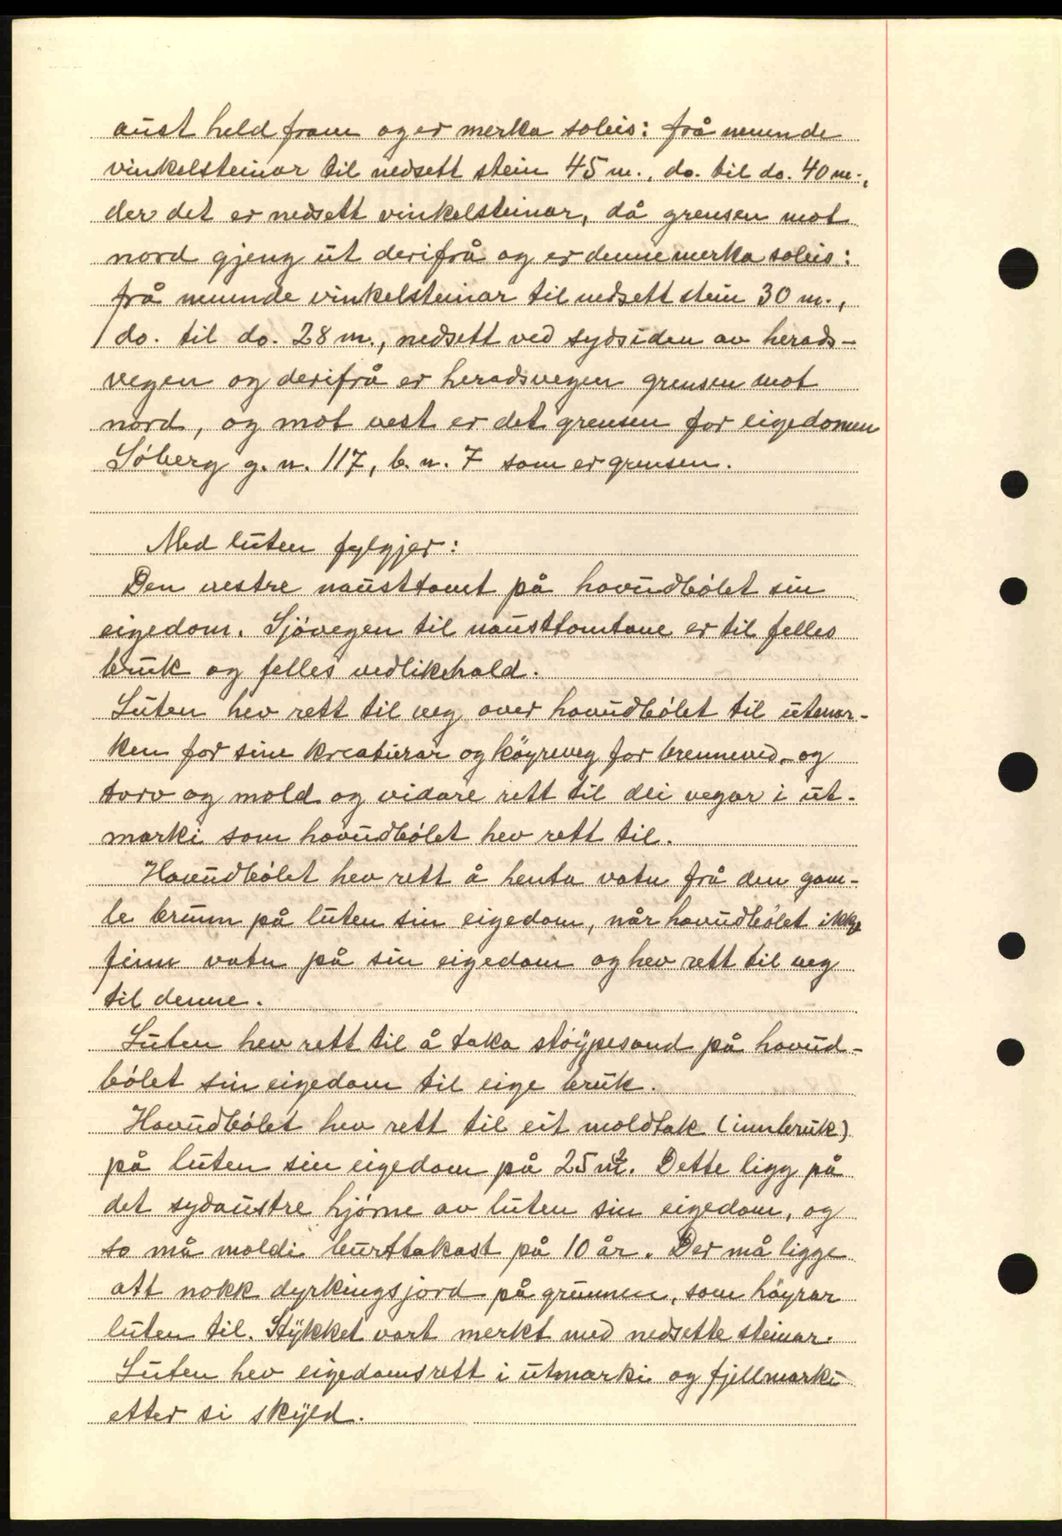 aust held fram og er merka soleis: frå nemnde
vinkelsteinar til nedsett stein 45 m., do. til do. 40 m.,
der det er nedsett vinkelsteinar, då grensen mot
nord gjeng ut derifrå og er denne merka soleis:
frå nemnde vinkelsteinar til nedsett stein 30 m.,
do. til do. 28 m., nedsett ved sydsiden av herads-
vegen og derifrå er heradsvegen grensen mot
nord, og mot vest er det grensen for eigedomen
Söberg g. n. 117, b. n. 7 som er grensen.
Med luten fylgjer:
Den vestre nausttomt på hovudbölet sin
eigedom. Sjövegen til nausttomtane er til felles
bruk og felles vedlikehald.
Luten hev rett til veg over hovudbölet til utmar-
ken for sine kreaturar og köyreveg for brenneved- og
torv og mold og vidare rett til dei vegar i ut-
marki som hovudbölet hev rett til.
Hovudbölet hev rett å henta vatn frå den gam-
le brunn på luten sin eigedom, når hovudbölet ikkje
finn vatn på sin eigedom og hev rett til veg
til denne.
Luten hev rett til å taka stöypesand på hovud-
bölet sin eigedom til eige bruk.
Hovudbölet hev rett til eit moldtak (innbruk)
på luten sin eigedom på 25 m². Dette ligg på
det sydaustre hjörne av luten sin eigedom, og
so må moldi burttakast på 10 år. Der må ligge
att nokk dyrkingsjord på grunnen, som höyrar
luten til. Stykket vart merkt med nedsette steinar.
Luten hev eigedomsrett i utmarki og fjellmarki
etter si skyld.